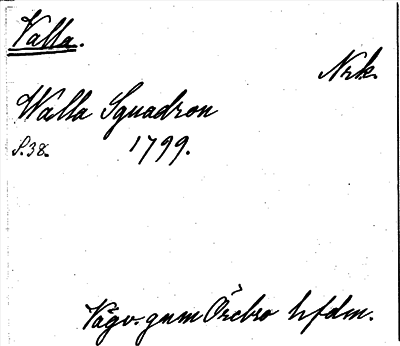 Valla.
Nrk.
Walla Squadron
S.38. 1799.
Vägv. gnm Örebro hfdm.